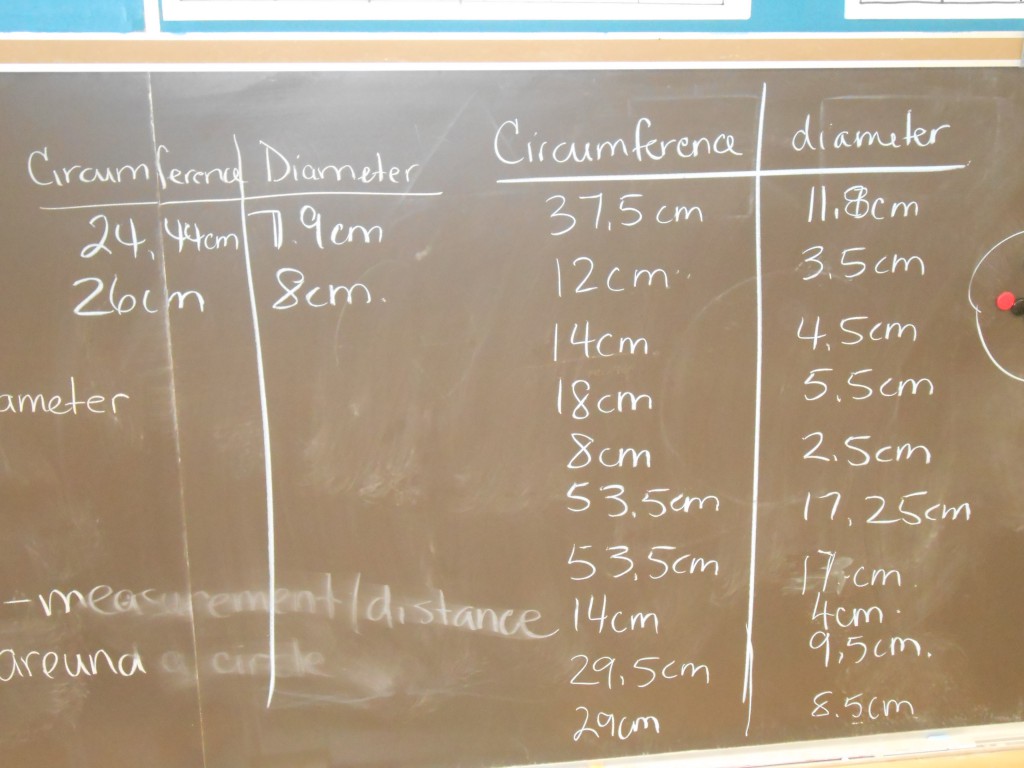 Circumference Diameter
24,44cm 7.9cm
26cm 8cm.
ameter
-measurement/distance
around a circle
Circumference diameter
37,5cm 11,8cm
12cm 3.5cm
14cm 4,5cm
18cm 5.5cm
8cm 2.5cm
53,5cm 17,25cm
53,5cm 17 cm
14cm 4cm
29,5cm 9,5cm.
29cm 8.5cm